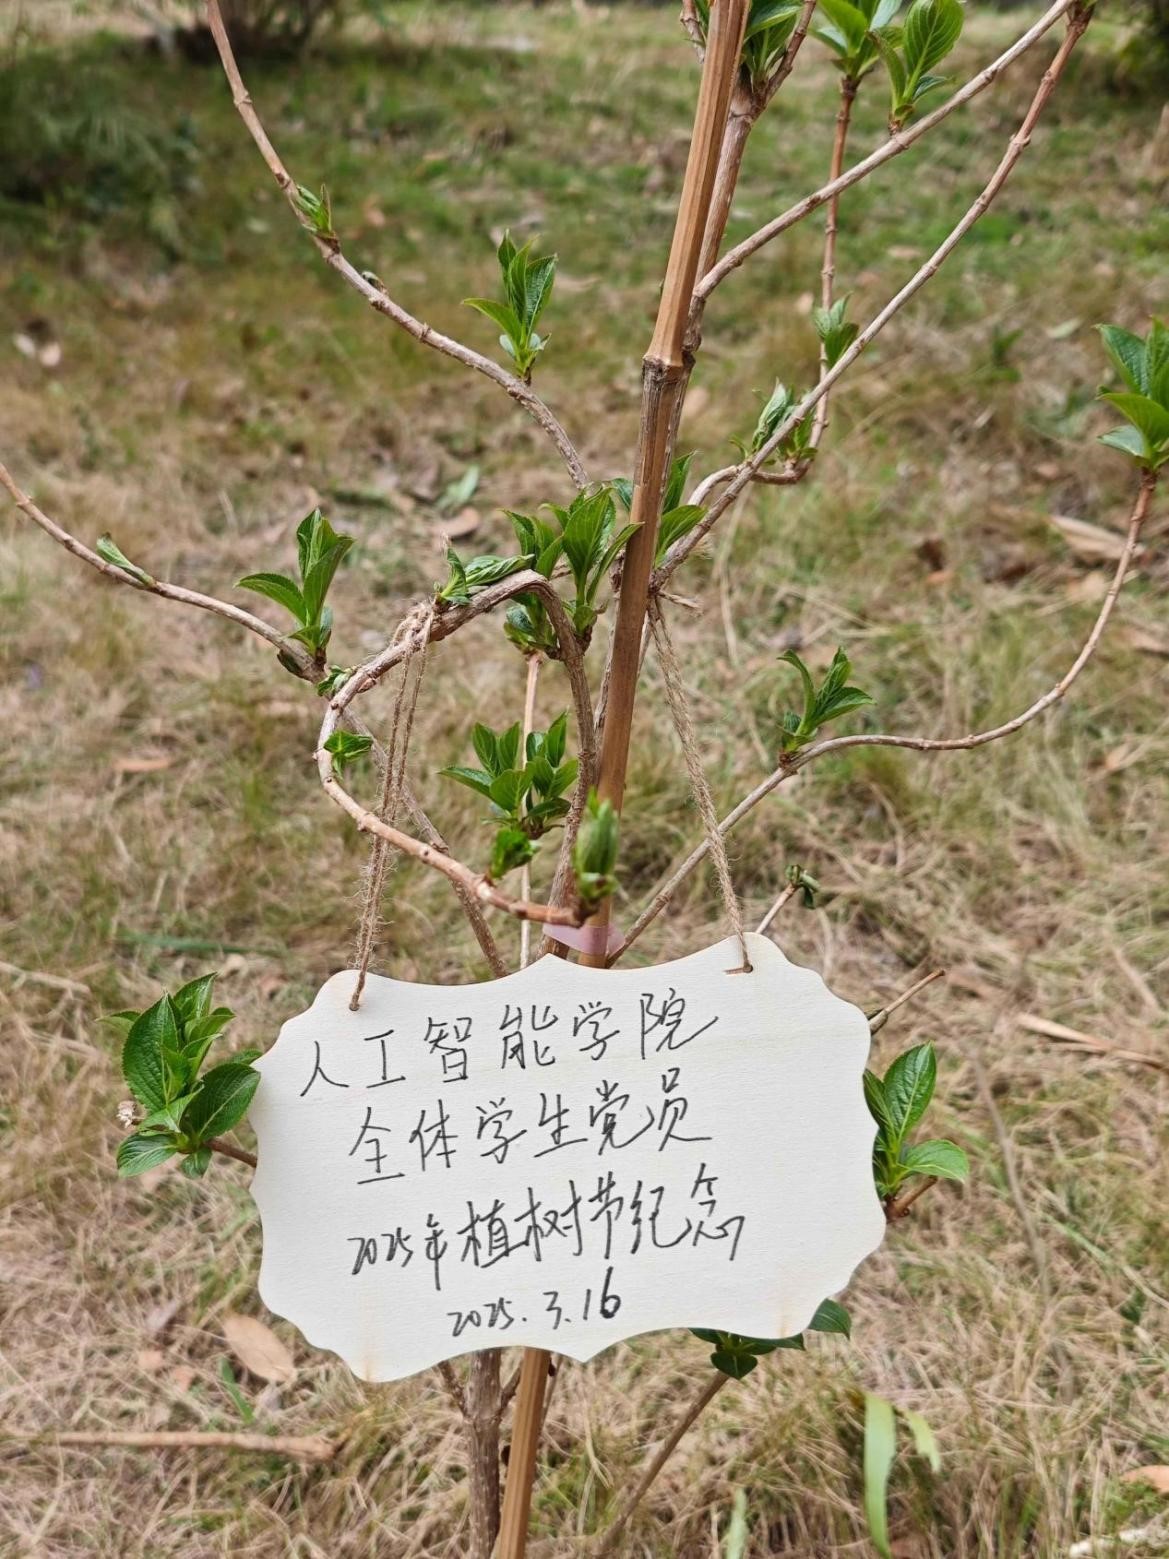 人工智能学院
全体学生党员
2025年植树节纪念
2025.3.16